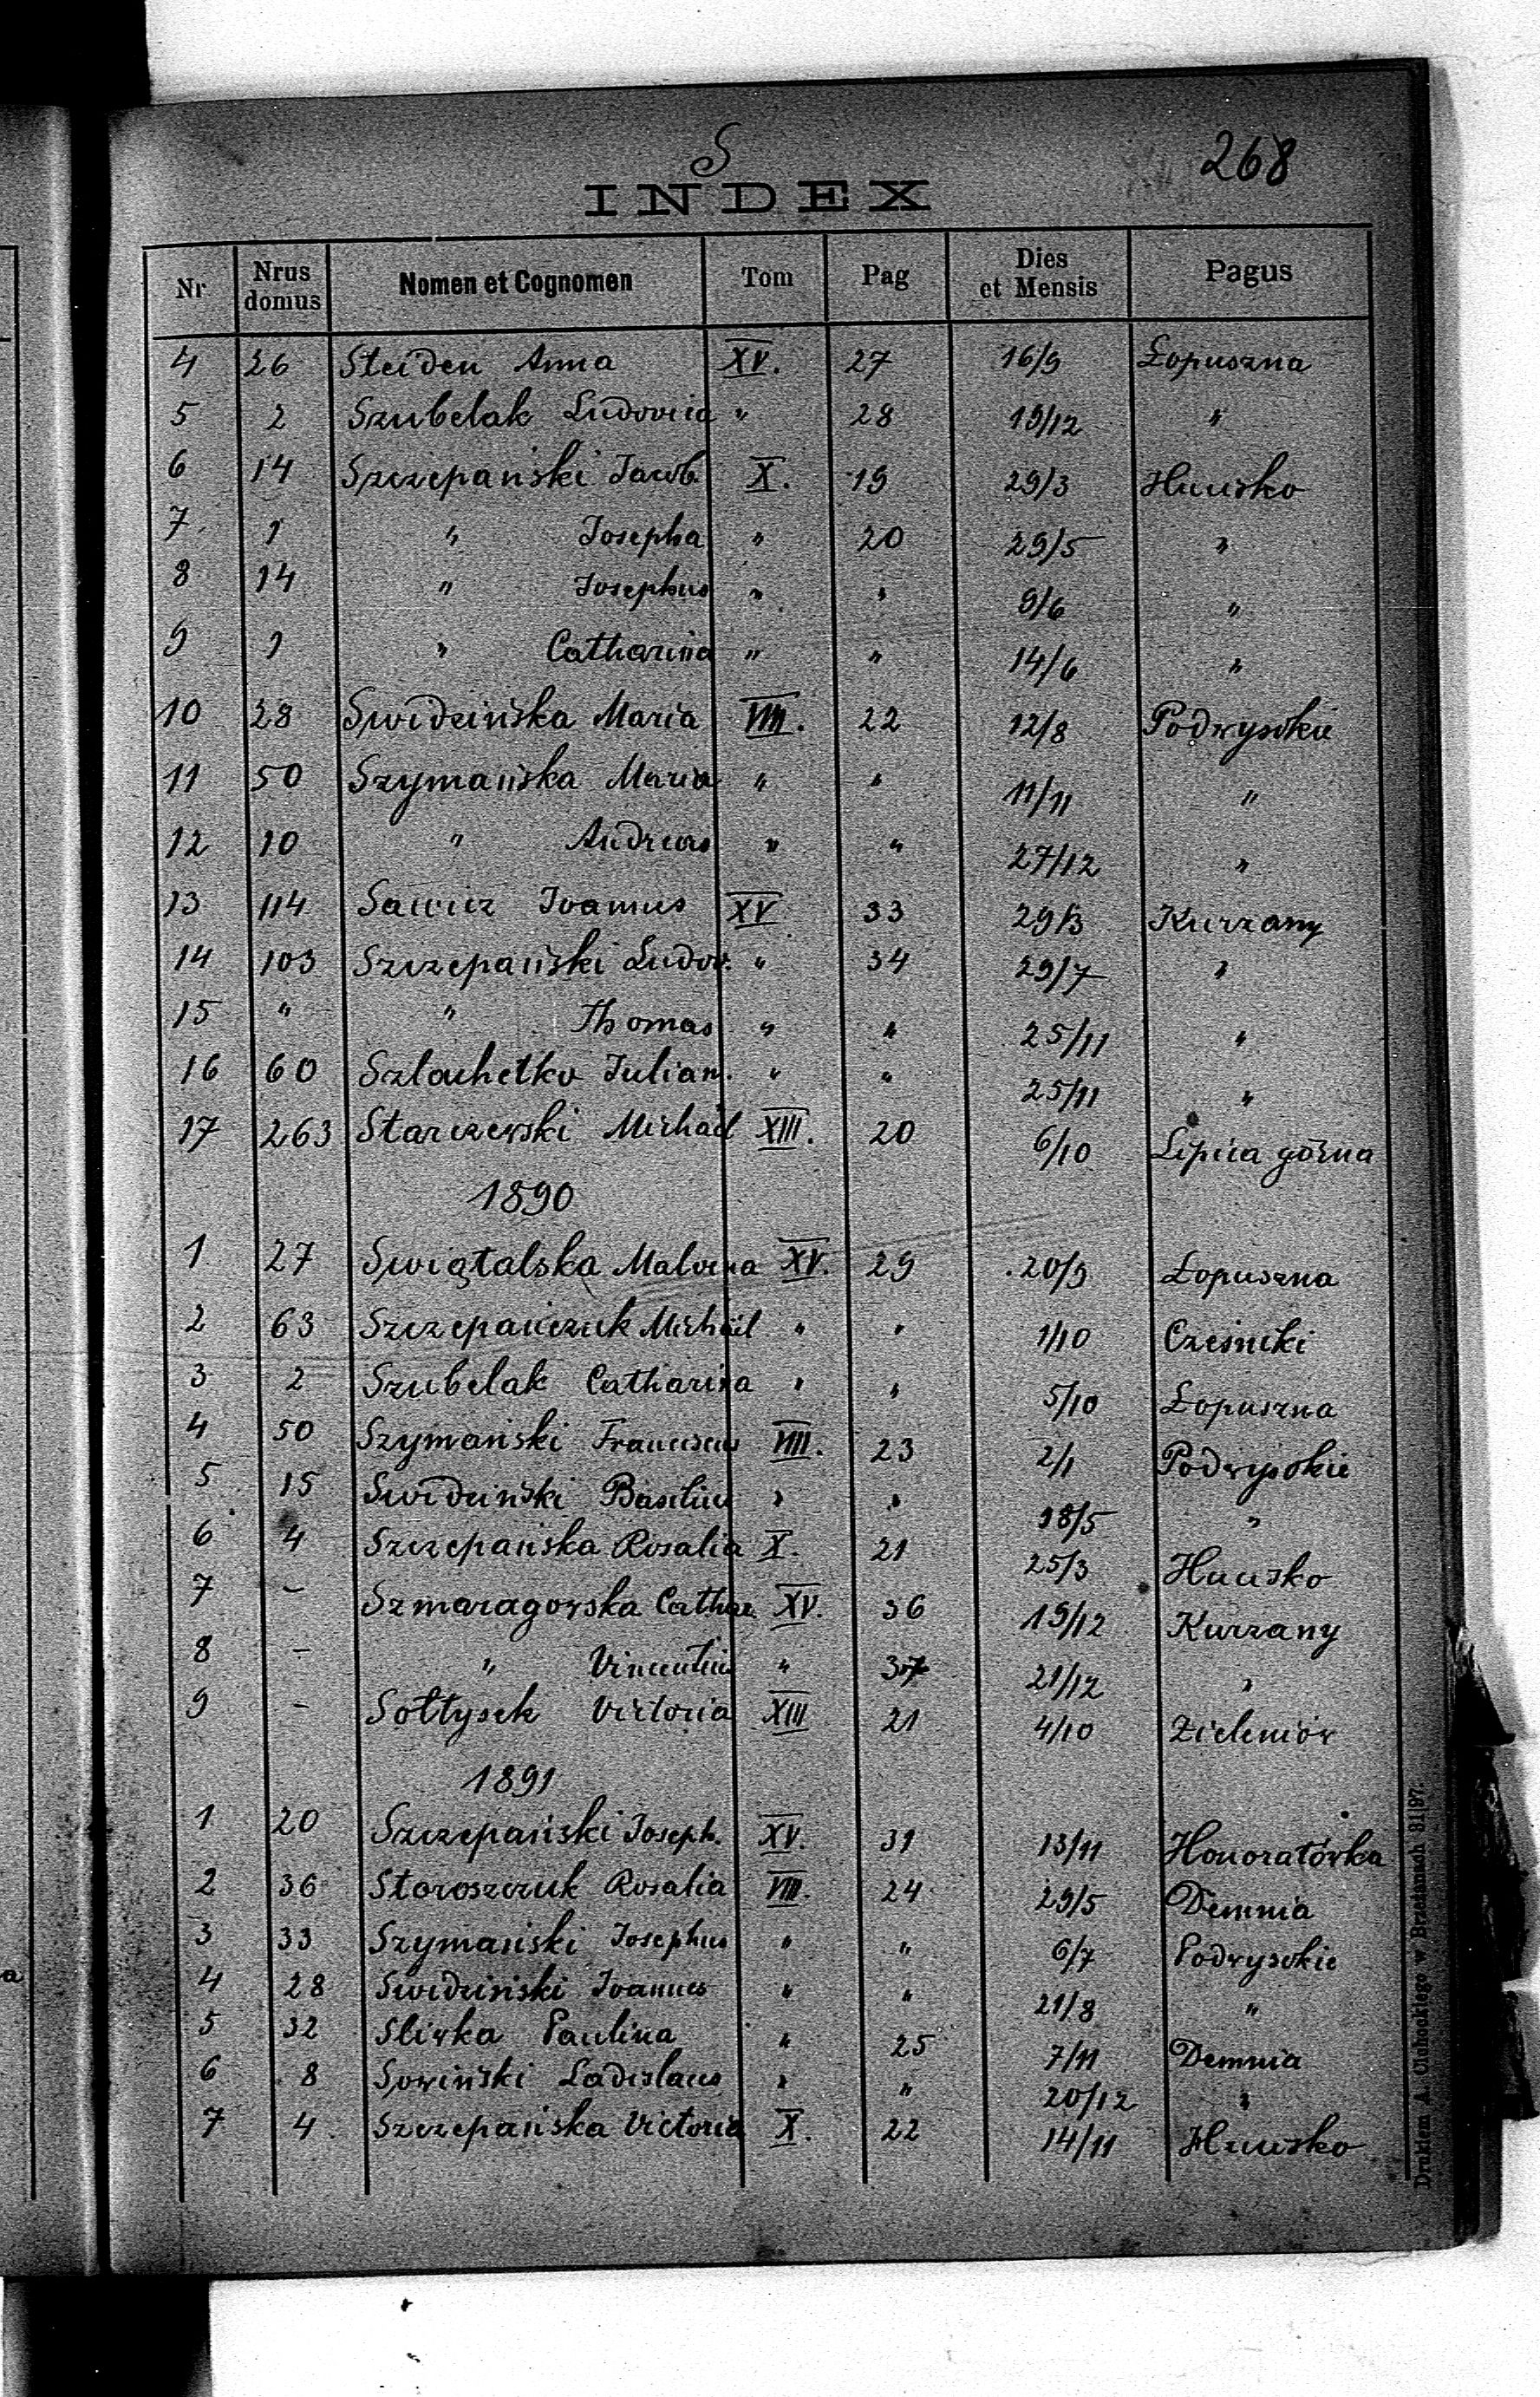 S
268
INDEX
Nr Nrus domus Nomen et Cognomen Tom Pag Dies et Mensis Pagus
4 26 Steiden Anna XV. 27 16/9 Łopuszna
5 2 Szubelak Ludovica " 28 19/12 "
6 14 Szczepański Jacob. X. 19 29/3 Hucisko
7. 1 " Josepha " 20 29/5 "
8 14 " Josephus " " 9/6 "
9 1 " Catharina " " 14/6 "
10 28 Swidzińska Maria VIII. 22 12/8 Podwysokie
11 50 Szymańska Maria " " 11/11 "
12 10 " Andreas " " 27/12 "
13 114 Sawicz Joannes XV 33 29/3 Kurzany
14 103 Szczepański Ludov. " 34 29/7 "
15 " " Thomas " " 25/11 "
16 60 Szlachetko Julian. " " 25/11 "
17 263 Starczewski Michael XIII. 20 6/10 Lipica górna
1890
1 27 Swiątalska Malvina XV. 29 20/9 Łopuszna
2 63 Szczepańczuk Michael " " 1/10 Cześniki
3 2 Szubelak Catharina " " 5/10 Łopuszna
4 50 Szymański Franciscus VIII. 23 2/1 Podwysokie
5 15 Swidziński Basilius " " 18/5 "
6 4 Szczepańska Rosalia X. 21 25/3 Hucisko
7 - Szmaragowska Cathar. XV. 36 19/12 Kurzany
8 - " Vincentius " 37 21/12 "
9 - Sołtysek Victoria XIII 21 4/10 Zieleniów
1891
1 20 Szczepański Joseph. XV. 31 13/11 Honoratówka
2 36 Storoszczuk Rosalia VIII. 24 29/5 Demnia
3 33 Szymański Josephus " " 6/7 Podwysokie
4 28 Swidziński Joannes " " 21/8 "
5 32 Sliwka Paulina " 25 7/11 Demnia
6 8 Sowiński Ladislaus " " 20/12 "
7 4. Szczepańska Victoria X. 22 14/11 Hucisko
Drukiem A. Głobockiego w Brzeżanach 81|97.
a